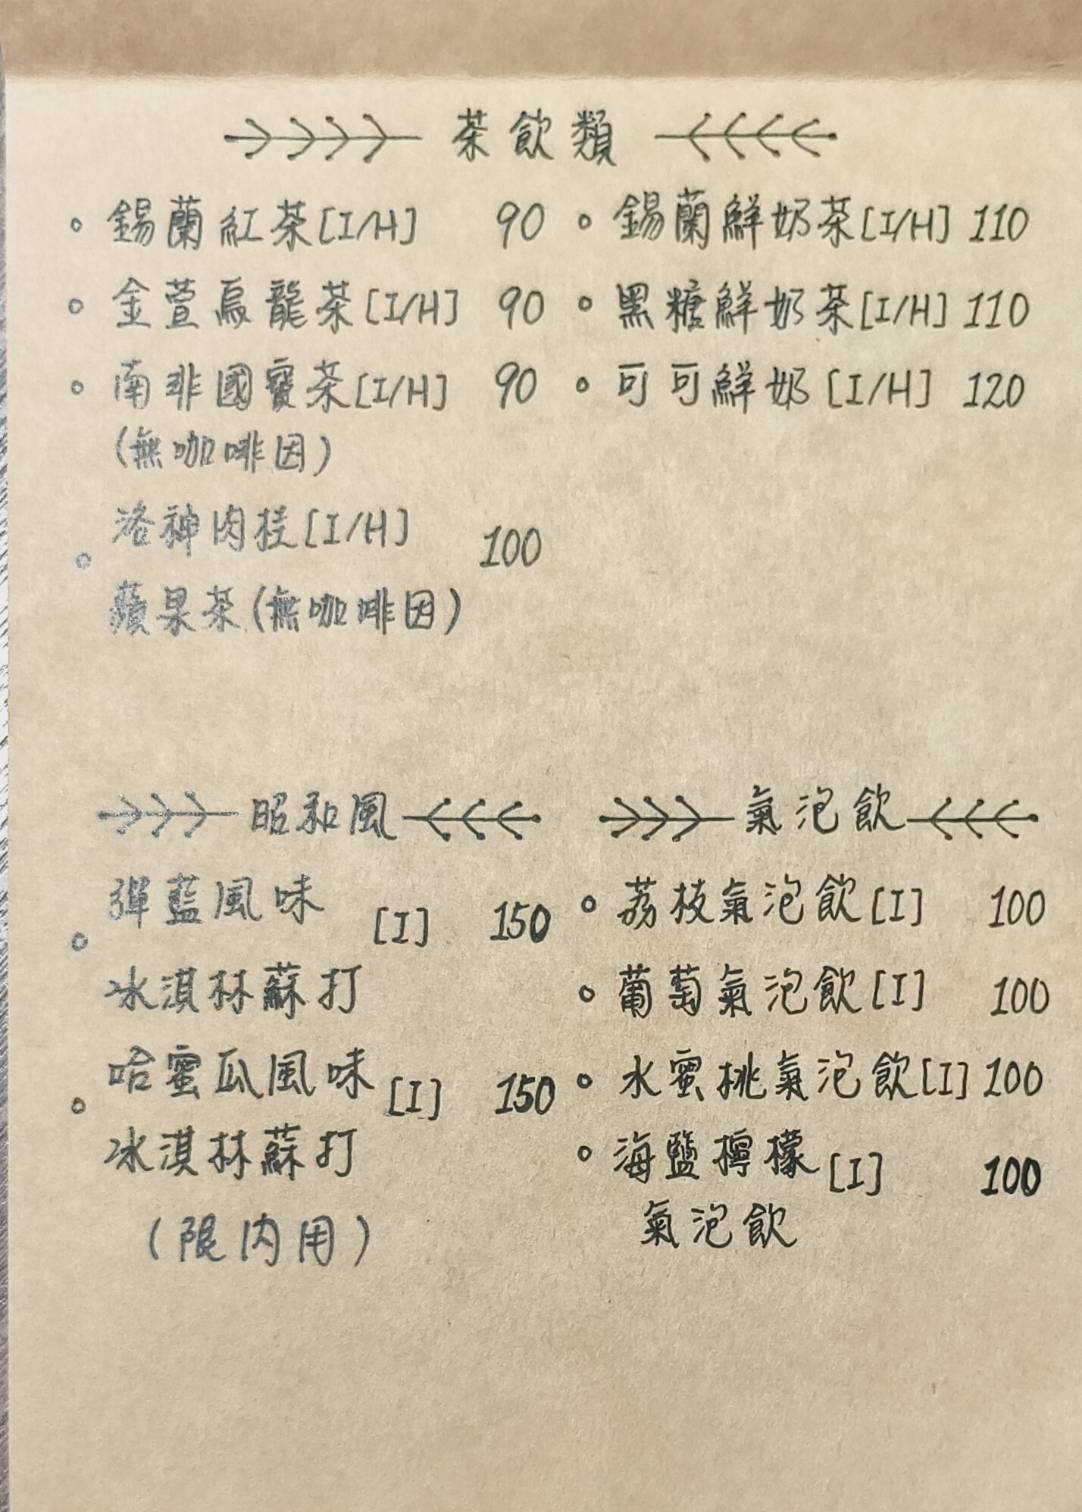 茶飲類
錫蘭紅茶[I/H] 90
金萱烏龍茶[I/H] 90
南非國寶茶[I/H] 90
(無咖啡因)
洛神肉桂[I/H] 100
蘋果茶(無咖啡因)
錫蘭鮮奶茶[I/H] 110
黑糖鮮奶茶[I/H] 110
可可鮮奶[I/H] 120
昭和風
彈藍風味 [I] 150
冰淇林蘇打
哈蜜瓜風味 [I] 150
冰淇林蘇打
(限內用)
氣泡飲
荔枝氣泡飲[I] 100
葡萄氣泡飲[I] 100
水蜜桃氣泡飲[I] 100
海鹽檸檬[I] 100
氣泡飲